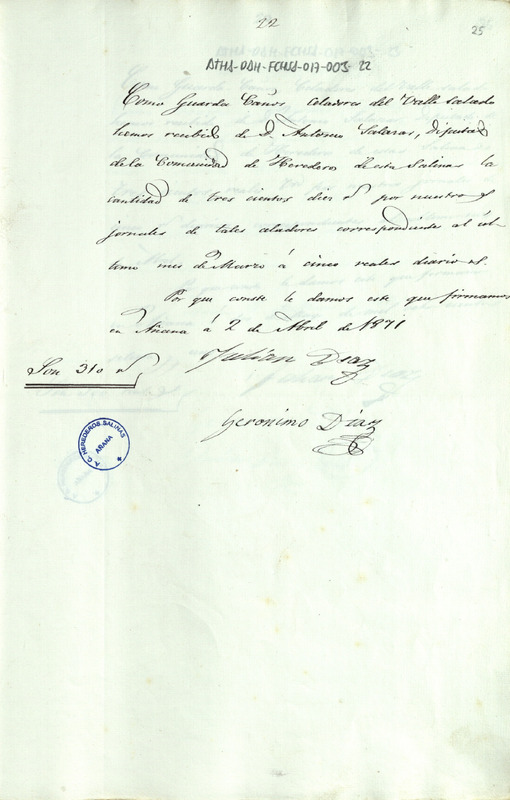 22
25
ATHA-DAH-FCHSA-017-003-22
Como Guarda Caños, celadores del Valle salado
hemos recibido de D. Antonio Salazar, diputado
de la Comunidad de Herederos de esta Salinas la
cantidad de tres cientos diez rs por nuestros
jornales de tales celadores correspondiente al úl-
timo mes de Marzo á cinco reales diarios
Por que conste le damos este que firmamos
en Añana á 2 de Abril de 1871
Julian Diaz
Son 310 rs
Geronimo Díaz
A. C. HEREDEROS SALINAS
AÑANA